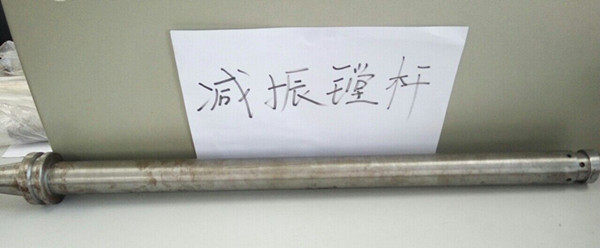 减振镗杆